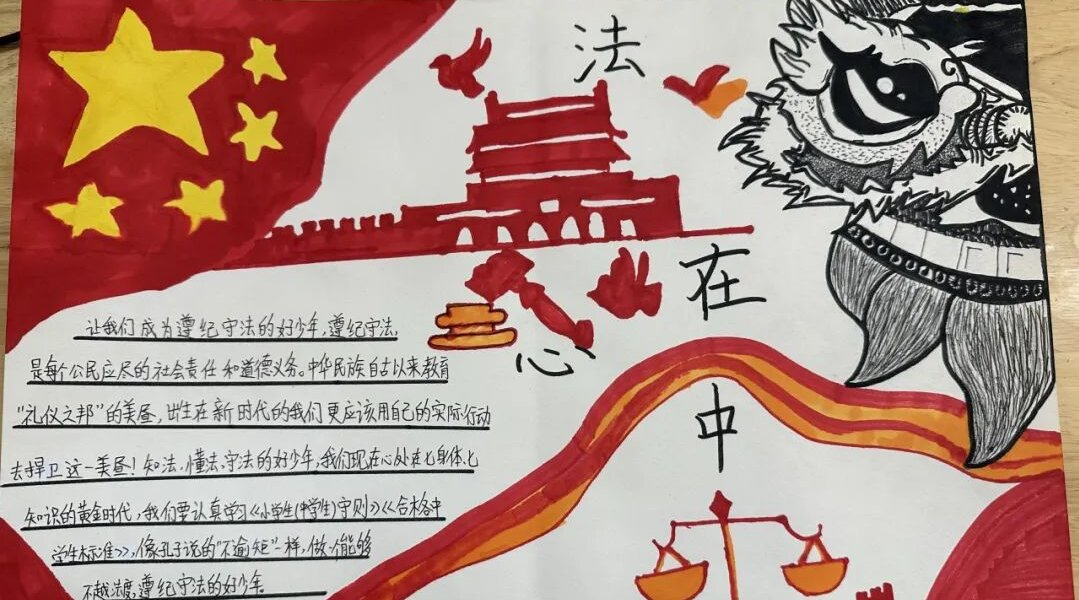 法
在
心
中
让我们成为遵纪守法的好少年,遵纪守法,
是每个公民应尽的社会责任和道德义务。中华民族自古以来教育
“礼仪之邦”的美昼,出生在新时代的我们更应该用自己的实际行动
去捍卫这一美昼!知法、懂法、守法的好少年,我们现在心处在七身体、七
知识的黄金时代,我们要认真学习《小学生(中学生)守则》《合格中
学生标准》,像孔子说的“不逾矩”一样,做一个能够
不越法度,遵纪守法的好少年。